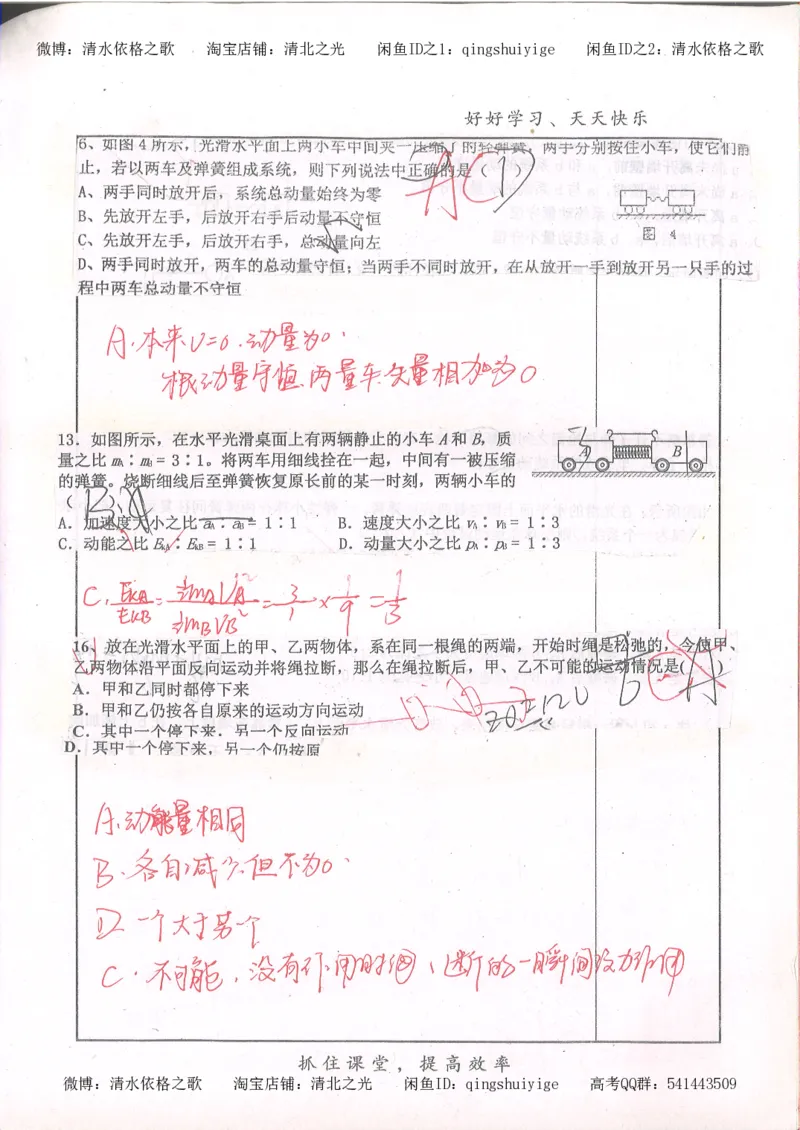 微博：清水依格之歌 淘宝店铺：清北之光 闲鱼ID之1：qingshuiyige 闲鱼ID之2：清水依格之歌
好好学习、天天快乐
6、如图4所示，光滑水平面上两小车中间夹一压缩了的轻弹簧，两手分别按住小车，使它们静
止，若以两车及弹簧组成系统，则下列说法中正确的是（
A、两手同时放开后，系统总动量始终为零
B、先放开左手，后放开右手后动量不守恒
C、先放开左手，后放开右手，总动量向左
图 4
D、两手同时放开，两车的总动量守恒；当两手不同时放开，在从放开一手到放开另一只手的过
程中两车总动量不守恒
A.本来V=0.动量为0.
根动量守恒.两量车矢量相加为0
13．如图所示，在水平光滑桌面上有两辆静止的小车A和B，质
量之比mA∶mB = 3∶1。将两车用细线拴在一起，中间有一被压缩
的弹簧。烧断细线后至弹簧恢复原长前的某一时刻，两辆小车的
（
A B
A．加速度大小之比aA∶aB = 1∶1 B．速度大小之比vA∶vB = 1∶3
C．动能之比EkA∶EkB = 1∶1 D．动量大小之比pA∶pB = 1∶3
C. EKA/EKB = ½mAVA²/½mBVB² = 3/1 × 1/9 = 1/3
16、放在光滑水平面上的甲、乙两物体，系在同一根绳的两端，开始时绳是松弛的，今使甲、
乙两物体沿平面反向运动并将绳拉断，那么在绳拉断后，甲、乙不可能的运动情况是( )
A．甲和乙同时都停下来
B．甲和乙仍按各自原来的运动方向运动
C．其中一个停下来，另一个反向运动
D．其中一个停下来，另一个仍按原
A.动能量相同
B.各自减少.但不为0.
D.一个大于另一个
C.不可能，没有作用时间、断的一瞬间没力作用
抓住课堂，提高效率
微博：清水依格之歌 淘宝店铺：清北之光 闲鱼ID：qingshuiyige 高考QQ群：541443509